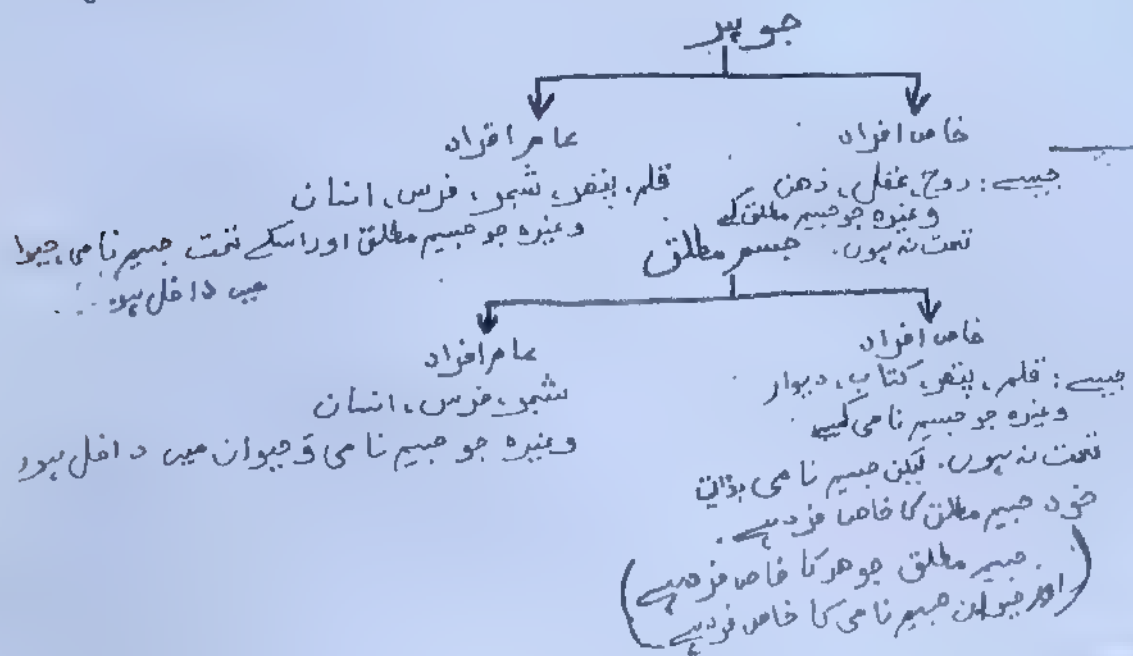 جوہر
خاص افراد
جیسے: روح، عقل، ذھن
وغیرہ جو جسیم مطلق کے
تحت نہ ہوں.
عام افراد
قلم، پتھر، شجر، فرس، انسان
وغیرہ جو جسیم مطلق اور اسکے تحت جسیم نامی، حیوا
میں داخل ہو
جسم مطلق
خاص افراد
جیسے: قلم، پتھر، کتاب، دیوار
وغیرہ جو جسیم نامی کے
تحت نہ ہوں. لیکن جسیم نامی بذات
خود جسیم مطلق کا خاص فرد ہے.
(جسیم مطلق جوھر کا خاص فرد ہے
اور حیوان جسیم نامی کا خاص فرد ہے)
عام افراد
شجر، فرس، انسان
وغیرہ جو جسیم نامی و حیوان میں داخل ہوں